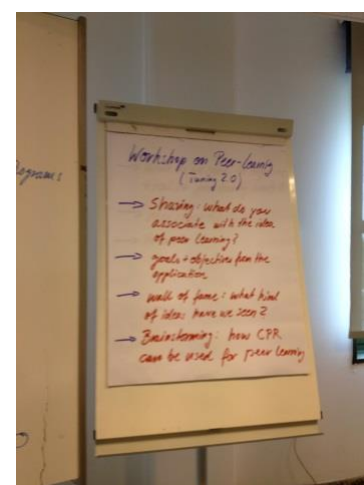 Workshop on Peer-Learning
(Tuning 2.0)
→ Sharing: what do you
associate with the idea
of peer learning?
→ goals + objectives from the
application
→ wall of fame: what kind
of ideas have we seen?
→ Brainstorming: how CPR
can be used for peer learning